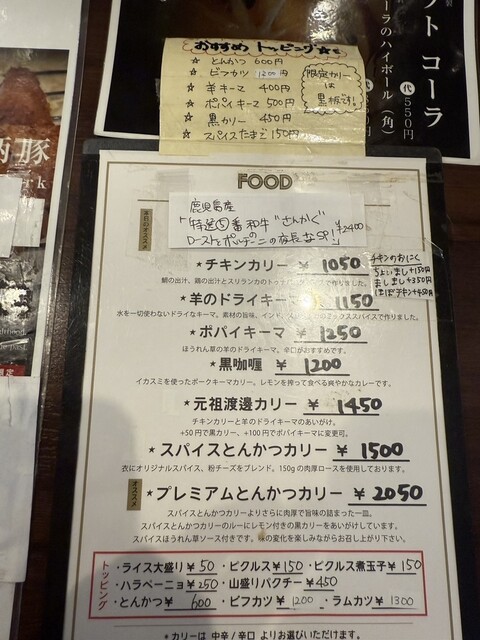 おすすめ トッピング☆
☆ とんかつ 600円
☆ ビフカツ 1200円
☆ 羊キーマ 400円
☆ ポパイキーマ 500円
☆ 黒カリー 450円
☆ スパイスたまご 150円
限定カリー
は
黒板です!
フト コーラ
代 550円
ーラのハイボール(角)
豚
FOOD
本日のオススメ
鹿児島産
「特選⑤番和牛"さんかく"
¥2400
★チキンカリー ¥ 1050
チキンのおにく
ちょいまし+150円
ましまし+350円
ほぼチキン+450円
★羊のドライキーマ 1150
★ポパイキーマ ¥ 1250
ほうれん草の羊のドライキーマ。辛口がおすすめです。
★黒咖喱 ¥ 1200
イカスミを使ったポークキーマカリー。レモンを搾って食べる爽やかなカレーです。
★元祖渡邊カリー ¥ 1450
チキンカリーと羊のドライキーマのあいがけ。
+50円で黒カリー、+100円でポパイキーマに変更可。
★スパイスとんかつカリー ¥ 1500
衣にオリジナルスパイス、粉チーズをブレンド。150gの肉厚ロースを使用しております。
オススメ
★プレミアムとんかつカリー ¥ 2050
スパイスとんかつカリーよりさらに肉厚で旨味の詰まった一皿。
スパイスとんかつカリーのルーにレモン付きの黒カリーをあいがけしています。
スパイスほうれん草ソース付きです。味の変化を楽しみながらお召し上がり下さい。
トッピング
・ライス大盛り¥50 ・ピクルス¥150 ・ピクルス煮玉子¥150
・ハラペーニョ¥250 ・山盛りパクチー¥450
・とんかつ¥ 600 ・ビフカツ¥ 1200 ・ラムカツ¥ 1300
★カリーは 中辛/辛口 よりお選びいただけます。